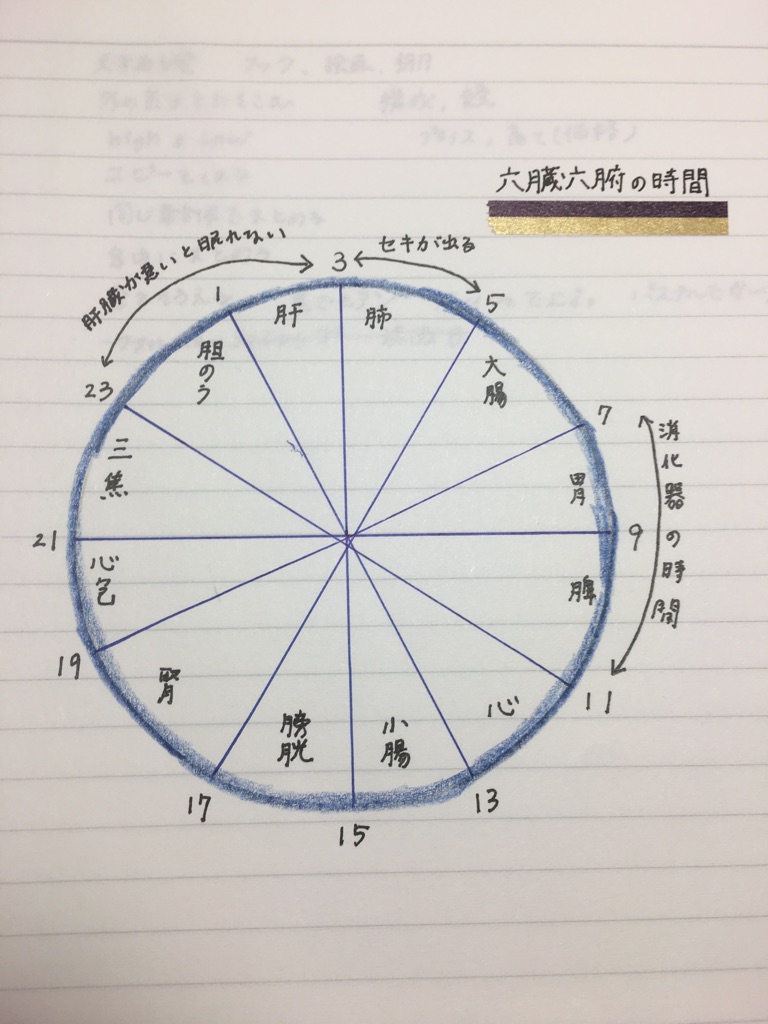 六臓六腑の時間
肝臓が悪いと眠れない
セキが出る
消化器の時間
1
3
5
7
9
11
13
15
17
19
21
23
肝
肺
大腸
胃
脾
心
小腸
膀胱
腎
心包
三焦
胆のう